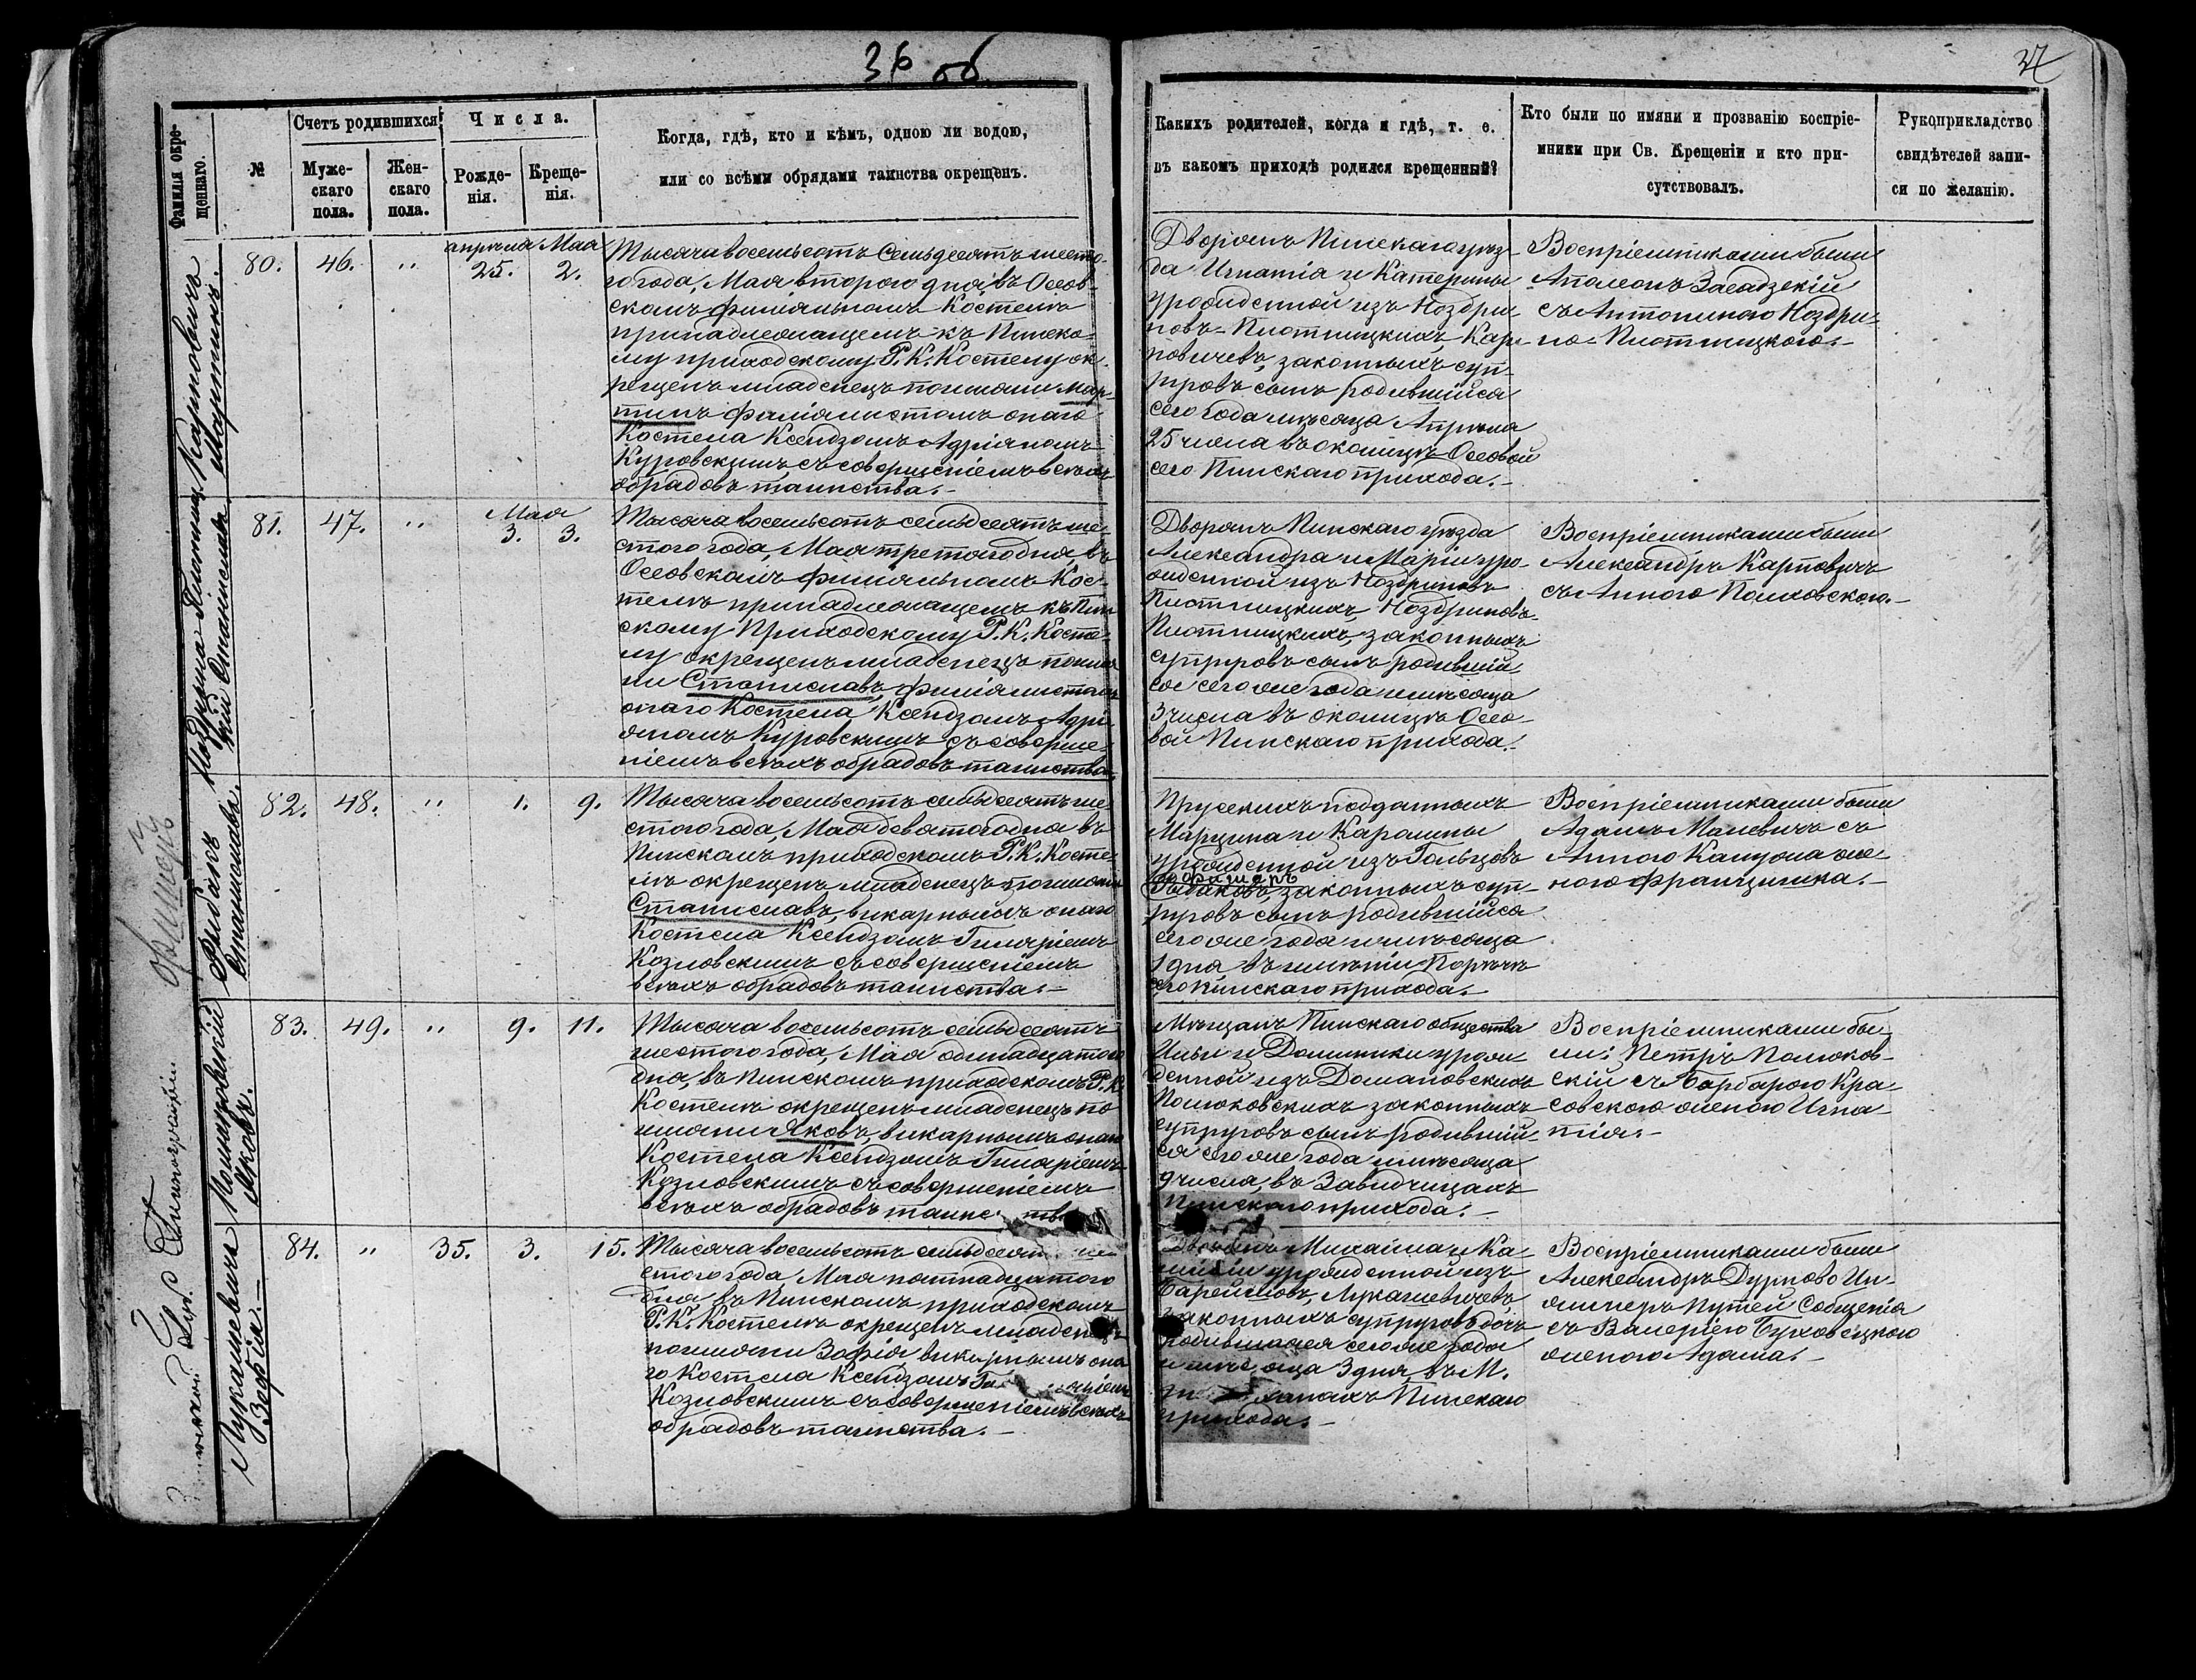 36 об
37
Фамилія окре-
щеннаго.
№
Счетъ родившихся.
Муже-
скаго
пола.
Жен-
скаго
пола.
Числа.
Рожде-
нія.
Креще-
нія.
Когда, гдѣ, кто и кѣмъ, одною ли водою,
или со всѣми обрядами таинства окрещенъ.
Каихъ родителей, когда и гдѣ, т. е.
въ какомъ приходѣ родился крещенный?
Кто были по имяни и прозванію воспріе-
мники при Св. Крещеніи и кто при-
сутствовалъ.
Рукоприкладство
свидѣтелей запи-
си по желанію.
Карповичъ
Мартинъ.
80.
46.
"
апрѣля Мая
25. 2.
Тысяча восемьсотъ семьдесятъ шесто-
го года, Мая второго дня, въ Осов-
скомъ филіяльномъ Костелѣ
принадлежащемъ къ Пинско-
му приходскому Р. К. Костелу ок-
рещенъ младенецъ по имени Мар-
тинъ филіялистомъ онаго
Костела Ксендзомъ Адріяномъ
Куровскимъ съ совершеніемъ всѣхъ
обрядовъ таинства.-
Дворянъ Пинскаго уѣз-
да Игнатія и Катерины
урожденной изъ Ноздри-
новъ-Плотницкихъ, Кар-
повичевъ, законныхъ суп-
руговъ сынъ родившійся
сего года мѣсяца Апрѣля
25 числа въ околицѣ Осовой
сего Пинскаго прихода.-
Воспріемниками были
Аполонъ Засадзскій
съ Антониною Ноздри-
но-Плотницкою.-
Ноздрина Плотниц
кій Станиславъ
81.
47.
"
Мая
3. 3.
Тысяча восемьсотъ семьдесятъ ше-
стого года, Мая третягодня, въ
Осовскомъ филіяльномъ Кос-
телѣ принадлежащемъ къ Пин-
скому Приходскому Р. К. Косте-
лу окрещенъ младенецъ по имя-
ни Станиславъ, филіялистомъ
онаго Костела Ксендзомъ Адрі-
яномъ Куровскимъ съ соверше-
ніемъ всѣхъ обрядовъ таинства.
Дворянъ Пинскаго уѣзда
Александра и Маріи уро-
жденной изъ Ноздриновъ
Плотницкихъ, Ноздриновъ-
Плотницкихъ, законныхъ
супруговъ сынъ родившій-
ся сегоже года и мѣсяца
3 числа въ околицѣ Осо-
вой Пинскаго прихода.-
Воспріемниками были
Александръ Карповичъ
съ Анною Полховскою.-
Рыбакъ
Станиславъ.
82.
48.
"
1.
9.
Тысяча восемьсотъ семьдесятъ ше-
стого года, Мая девятогодня въ
Пинскомъ приходскомъ Р. К. Косте-
лѣ окрещенъ младенецъ по имени
Станиславъ, викарнымъ онаго
Костела Ксендзомъ Гиляріемъ
Козловскимъ съ совершеніемъ
всѣхъ обрядовъ таинства.-
Прусскихъ подданныхъ
Марцина и Каролины
урожденной изъ Гольцовъ
Рыбаковъ, законныхъ суп-
руговъ сынъ родившійся
сегоже года и мѣсяца
1 дня, въ имѣніи Порѣчѣ
сего Пинскаго прихода.-
Воспріемниками были
Адамъ Малевичъ съ
Анною Капуста же-
ною Францишка.-
Полюховскій
Яковъ.
83.
49.
"
9.
11.
Тысяча восемьсотъ семьдесятъ
шестого года, Мая одинадцатого
дня, въ Пинскомъ приходскомъ Р. К.
Костелѣ окрещенъ младенецъ по
имяни Яковъ, викарнымъ онаго
Костела Ксендзомъ Гиляріемъ
Козловскимъ съ совершеніемъ
всѣхъ обрядовъ таинства
Мѣщанъ Пинскаго общества
Ильи и Доминики урож-
денной изъ Домановскихъ
Полюховскихъ законныхъ
супруговъ сынъ родившій-
ся сегоже года и мѣсяца
9 числа, въ Завидчицахъ
Пинскаго прихода.-
Воспріемниками бы-
ли: Петръ Полюхов-
скій съ Барбарою Кра-
совскою женою Игна-
тія.-
Лукашевичъ
Зофія.-
84.
"
35.
3.
15.
Тысяча восемьсотъ семьдесят ше-
стого года, Мая пятнадцатого
дня въ Пинскомъ приходскомъ
Р. К. Костелѣ окрещенъ младенецъ
по имяни Зофія викарнымъ она-
го Костела Ксендзомъ Ги ляріемъ
Козловскимъ съ совершеніемъ всѣхъ
обрядовъ таинства.-
Дворянъ Михаила и Ка-
миліи урожденной изъ
Лукашевичевъ,
законныхъ супруговъ дочь
родившаяся сегоже года
и мѣсяца 3 дня, въ М.
Пинскаго
прихода.-
Воспріемниками были
Александръ Дурново Ин-
женеръ Путей Сообщенія
съ Валеріею Буховецкою
женою Адама.-